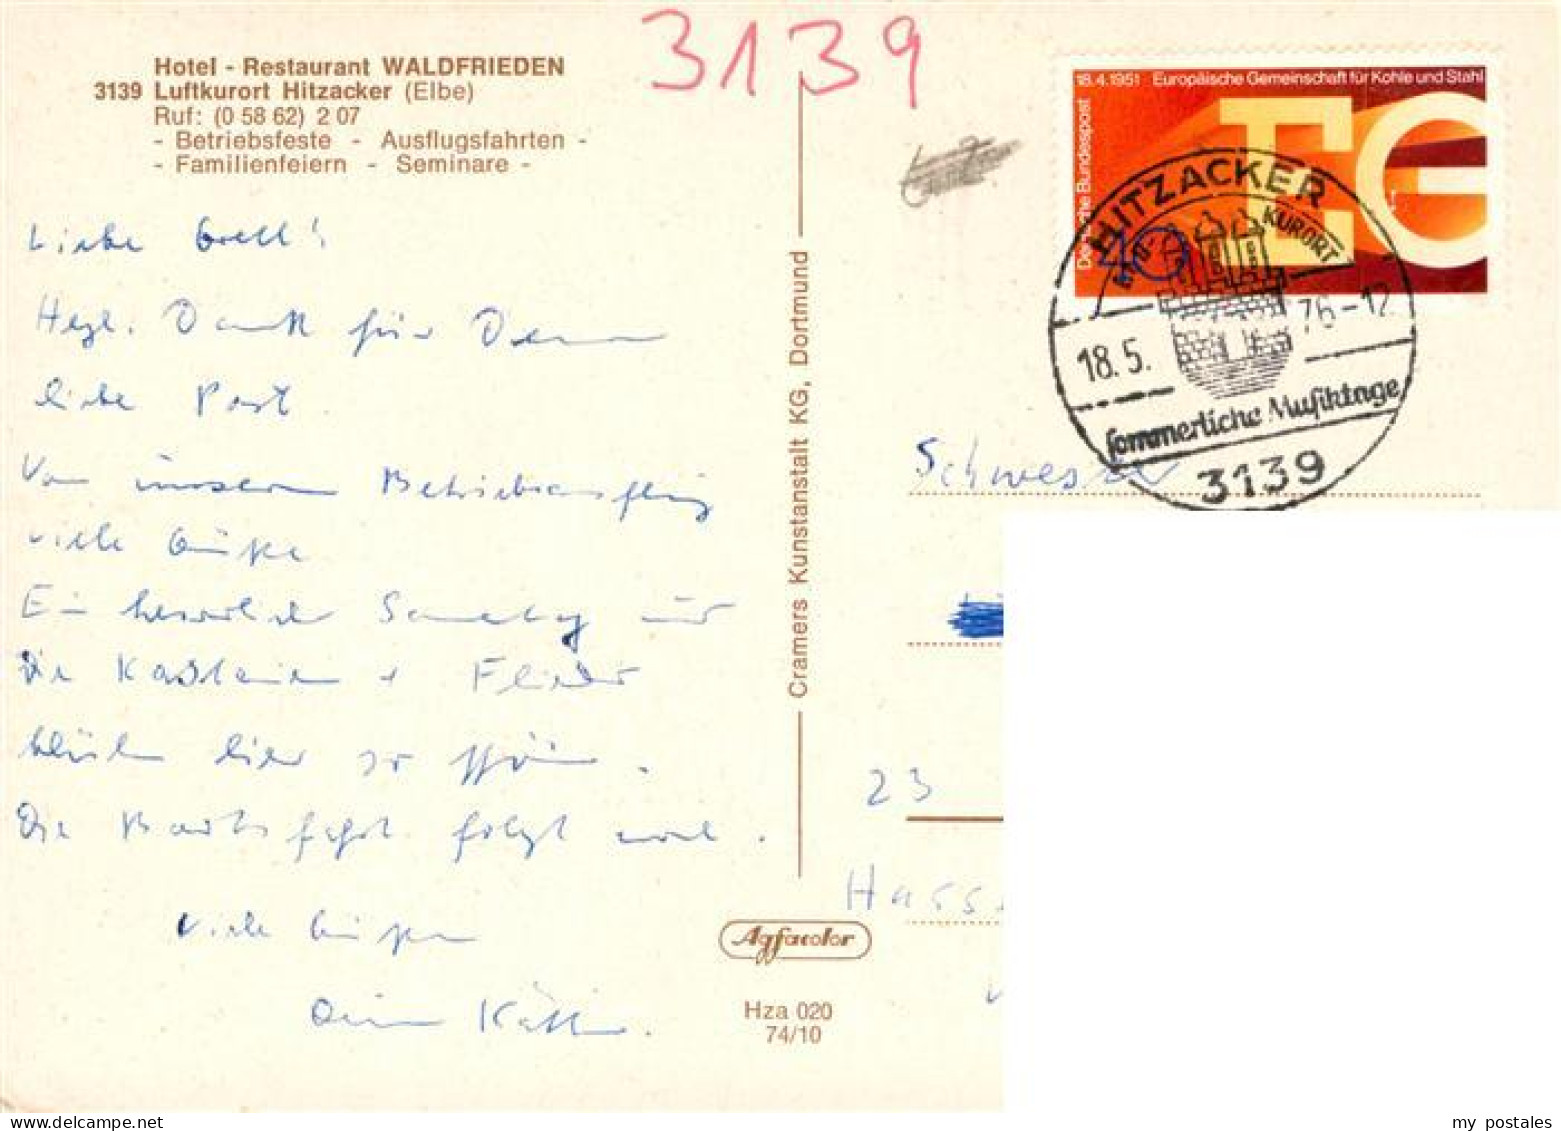 3139
Hotel - Restaurant WALDFRIEDEN
3139 Luftkurort Hitzacker (Elbe)
Ruf: (0 58 62) 2 07
- Betriebsfeste - Ausflugsfahrten -
- Familienfeiern - Seminare -
Liebe Gretl!
Hzgl. Dank für Deine
liebe Post.
Von unserem Betriebsausflug
viele Grüße
Ein herrlicher und
die Kastanien + Flieder
blühen hier so schön.
Die Bootsfahrt folgt noch.
Viele Grüße
Deine Käthe.
Cramers Kunstanstalt KG, Dortmund
Agfacolor
Hza 020
74/10
18.4.1951 Europäische Gemeinschaft für Kohle und Stahl
Deutsche Bundespost
EG
40
HITZACKER
KURORT
18.5. 76-12
Sommerliche Musiktage
3139
Schwester
23
Hass
my postales